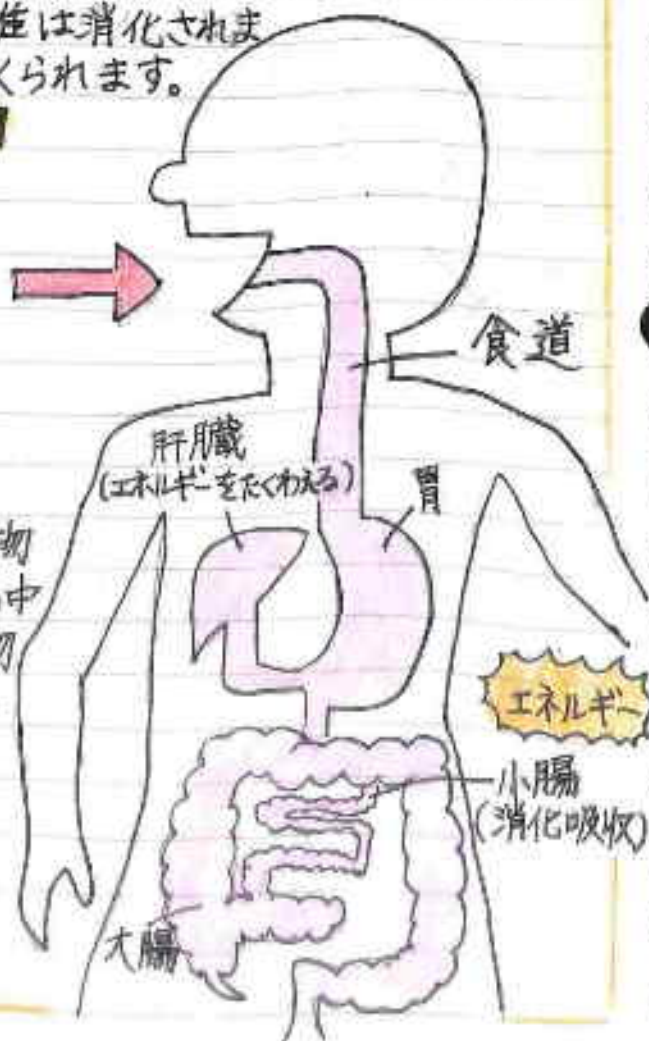 は消化されま
くられます。
食道
肝臓
(エネルギーをたくわえる)
胃
物
中
物
エネルギー
小腸
(消化吸収)
大腸